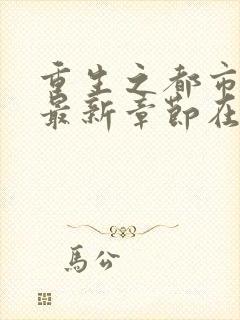 重生之都市
最新章节在
馬公